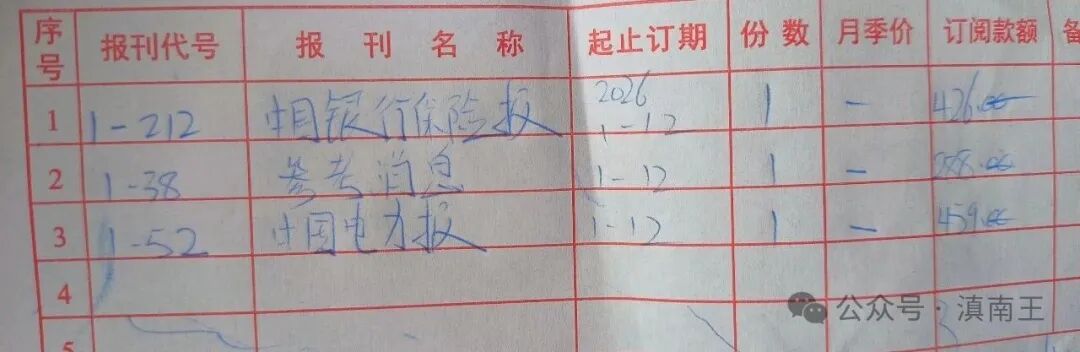 序号 报刊代号 报刊名称 起止订期 份数 月季价 订阅款额 备
1 1-212 中国银行保险报 2026 1-12 1 - 426.00
2 1-38 参考消息 1-12 1 - 288.00
3 1-52 中国电力报 1-12 1 - 459.00
4
5
公众号·滇南王